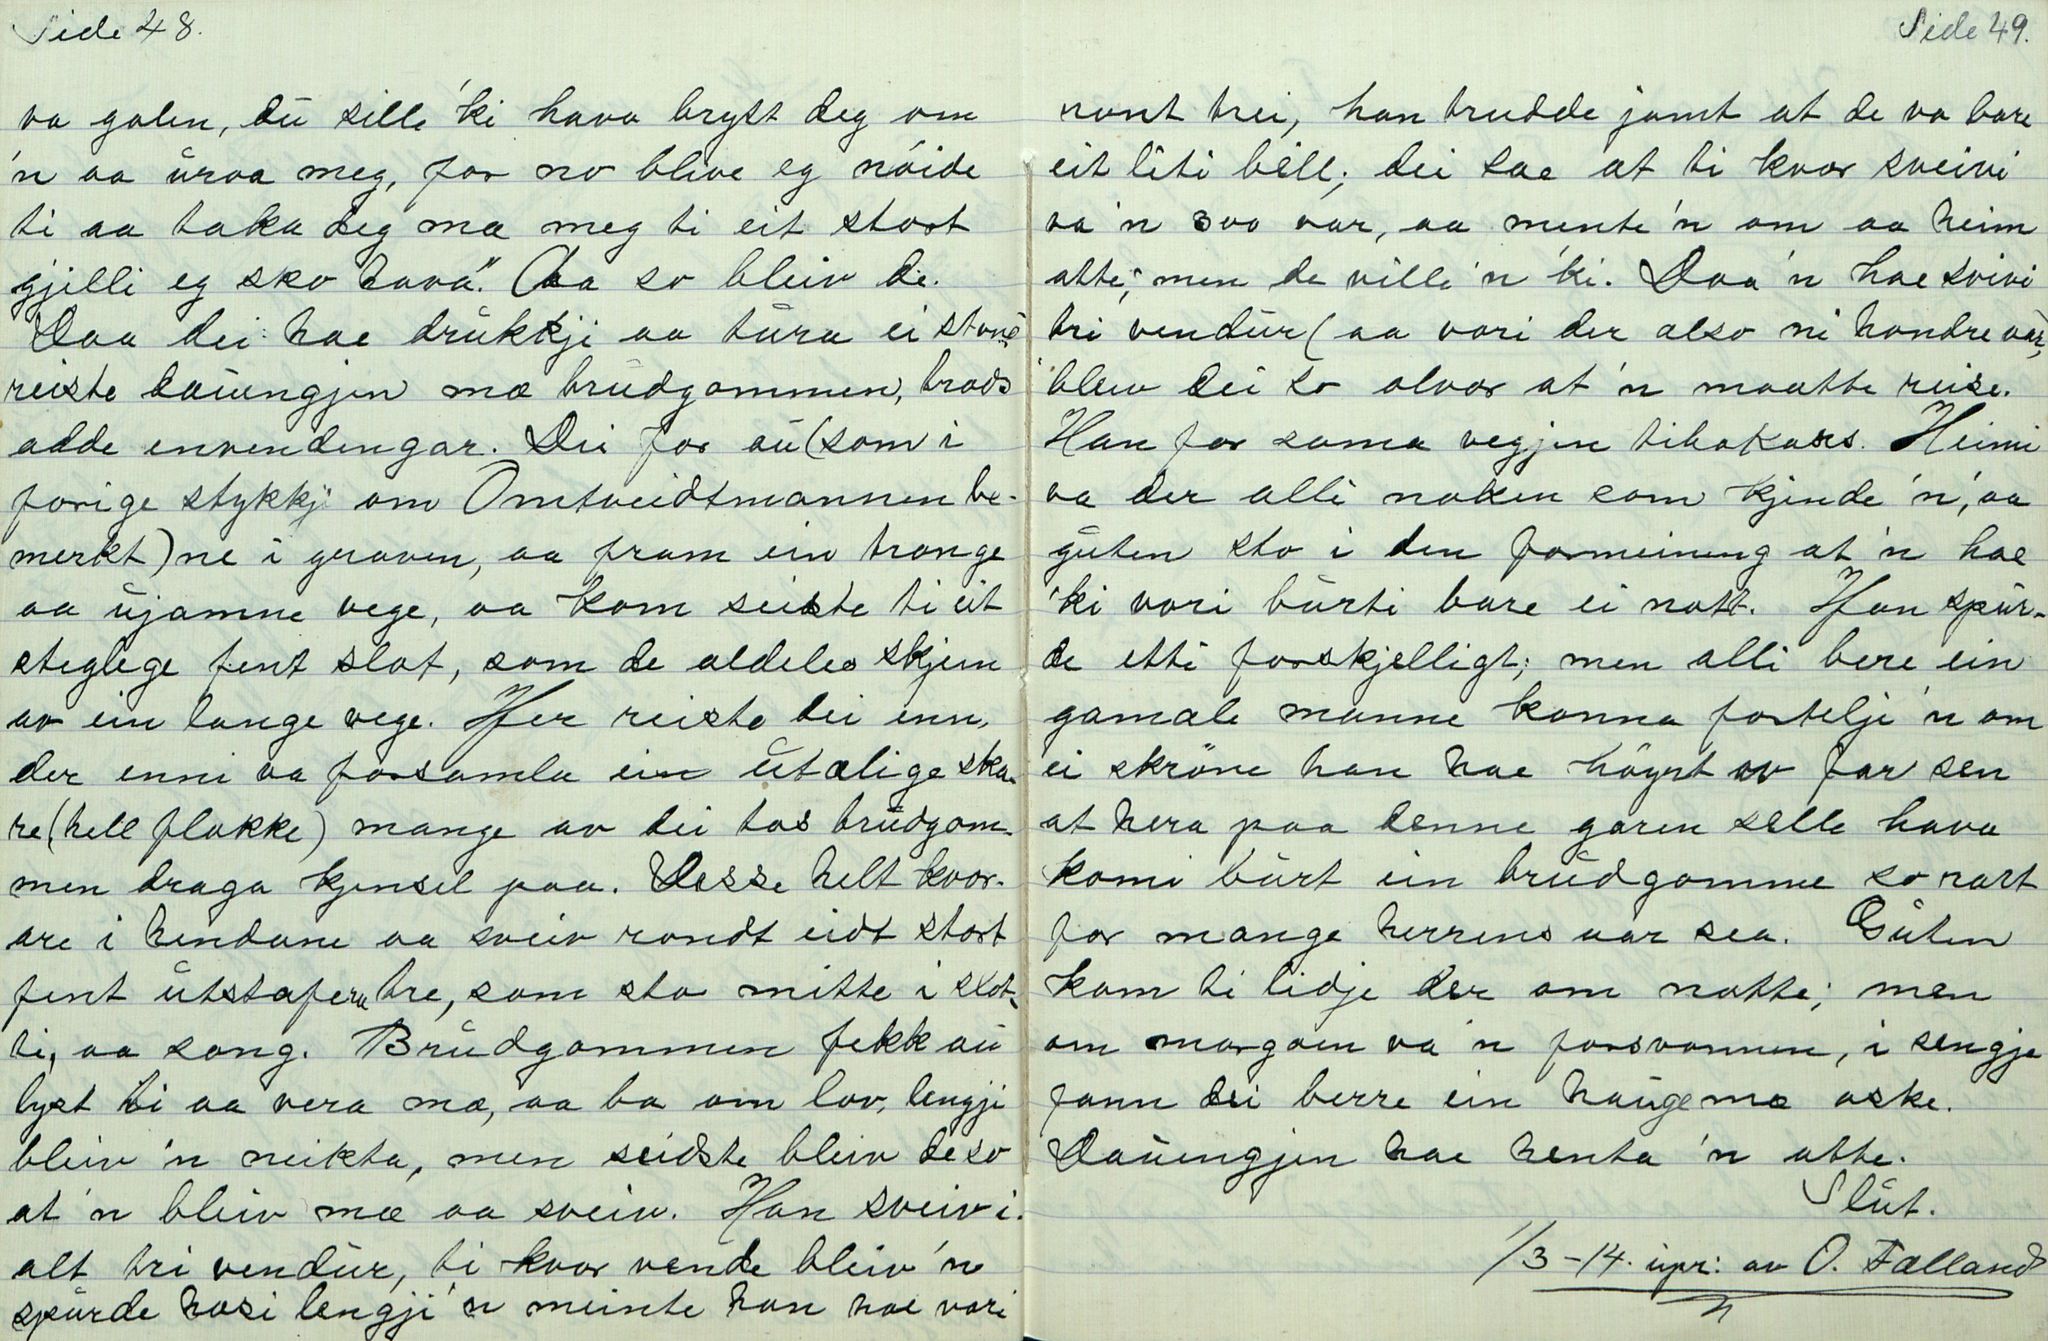 Side 48.
va galen, du sille 'ki hava brytt deg om
'n aa uroa meg, for no blive eg nöide
ti aa taka deg mæ meg ti eit stort
gjilli eg sko hava". Aa so bleiv de.
Daa dei hae drukkji aa tura ei stond
reiste dauengjen mæ brudgommen, trods
adde envendengar. Dei for au (som i
forige stykkji om Omtveidtmannen be-
merkt) ne i graven, aa fram ein trange
aa ujamne vege, aa kom seiste ti eit
steglege fent slot, som de aldeles skjein
av ein lange vege. Her reiste dei enn,
der enni va forsamla ein utælige ska-
re (hell flokke) mange av dei tos brudgom-
men draga kjensel paa. Desse helt kvor-
are i hendane aa sveiv rondt eidt stort
fent utstafera tre, som sto mitte i slot-
ti, aa song. Brudgommen fekk au
lyst ti aa vera mæ, aa ba om lov, lengji
bleiv 'n neikta, men seidste bleiv de so
at 'n bleiv mæ aa sveiv. Han sveiv i-
alt tri vendur, ti kvor vende bleiv 'n
spurde hosi lengji 'n meinte han hae vori
Side 49.
ront trei, han trudde jamt at de va bare
eit liti bell; dei sae at ti kvor sveivi
va 'n 300 aar, aa mente 'n om aa heim
atte; men de ville 'n 'ki. Daa 'n hae svivi
tri vendur (aa vori der also ni hondre aar,
bleiv dei so alvor at 'n maatte reise.
Han for sama vegjen tibakars. Heimi
va der alli noken som kjende 'n', aa
guten sto i den formeining at 'n hae
'ki vori burti bare ei nott. Han spur-
de etti forskjelligt; men alli bere ein
gamale manne konna fortelje 'n om
ei skröne han hae höyrt av far sen
at hera paa denne garen selle hava
komi burt ein brudgomme so rart
for mange herrens aar sea. Guten
kom ti lidje der om notte; men
om morgoen va 'n forsvonnen, i sengje
fann dei berre ein hauge mæ aske.
Dauengjen hae henta 'n atte.
Slut.
1/3-14. upr: av O. Fælland